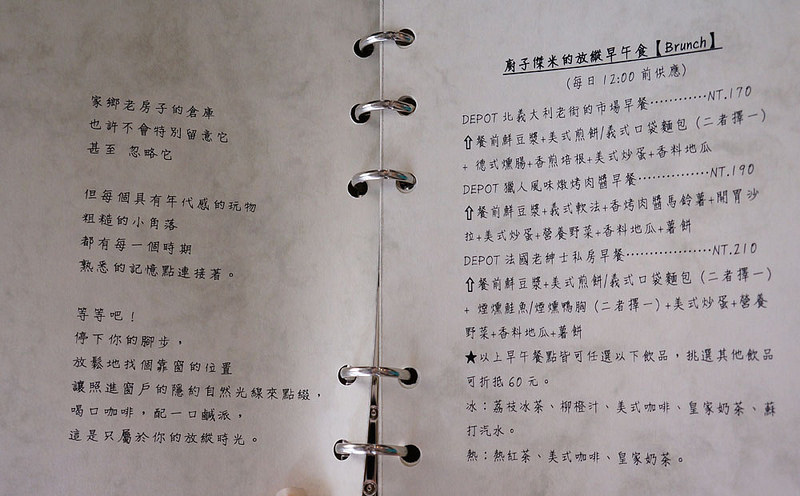 家鄉老房子的倉庫
也許不會特別留意它
甚至 忽略它
但每個具有年代感的玩物
粗糙的小角落
都有每一個時期
熟悉的記憶點連接著。
等等吧！
停下你的腳步，
放鬆地找個靠窗的位置
讓照進窗戶的隱約自然光線來點綴，
喝口咖啡，配一口鹹派，
這是只屬於你的放縱時光。
廚子傑米的放縱早午食【Brunch】
(每日 12:00 前供應)
DEPOT 北義大利老街的市場早餐…………NT.170
⇧餐前鮮豆漿+美式煎餅/義式口袋麵包 (二者擇一)
+ 德式燻腸+香煎培根+美式炒蛋+香料地瓜
DEPOT 獵人風味燉烤肉醬早餐……………NT.190
⇧餐前鮮豆漿+義式軟法+香烤肉醬馬鈴薯+開胃沙
拉+美式炒蛋+營養野菜+香料地瓜+薯餅
DEPOT 法國老紳士私房早餐………………NT.210
⇧餐前鮮豆漿+美式煎餅/義式口袋麵包 (二者擇一)
+ 煙燻鮭魚/煙燻鴨胸 (二者擇一)+美式炒蛋+營養
野菜+香料地瓜+薯餅
★以上早午餐點皆可任選以下飲品，挑選其他飲品
可折抵 60 元。
冰：荔枝冰茶、柳橙汁、美式咖啡、皇家奶茶、蘇
打汽水。
熱：熱紅茶、美式咖啡、皇家奶茶。